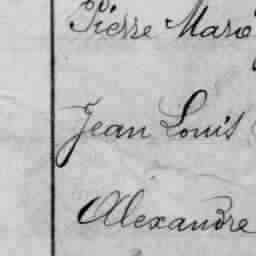 Pierre Marie
Jean Louis
Alexandre